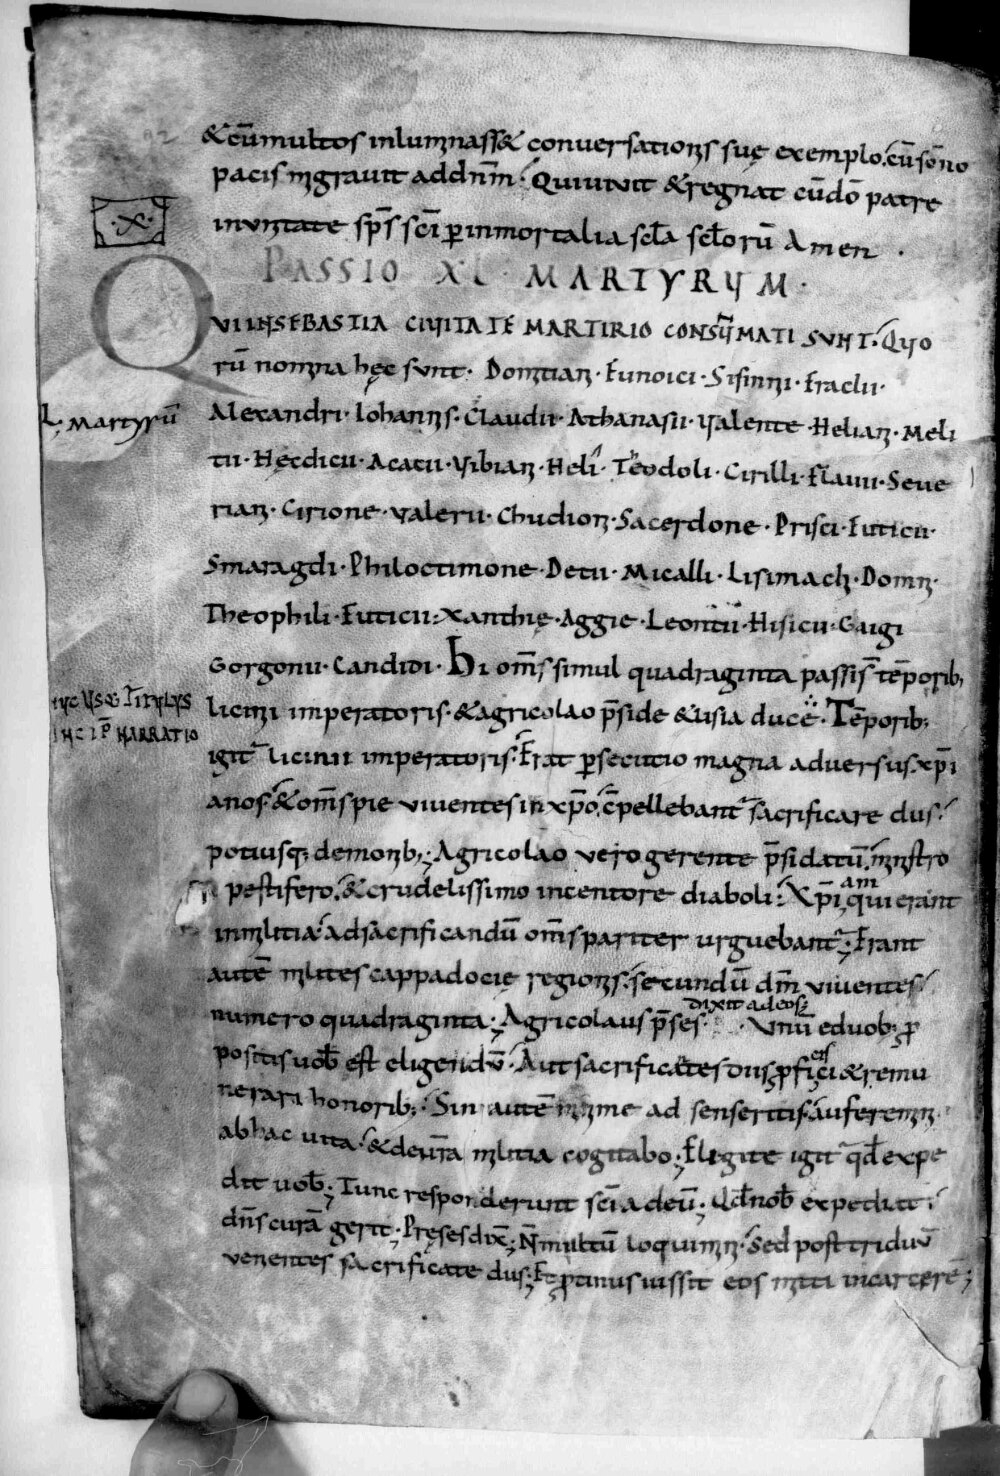 &cū multos inluminass& conversationis suę exemplo. cū sōno
pacis migravit ad dn̄m. Qui vivit & regnat cū dō patre
in unitate sp̄s sc̄i p̄ inmortalia sc̄la sc̄lorū Amen.
·X·
PASSIO XL MARTYRUM.
QUI IN SEBASTIA CIVITATE MARTIRIO CONSUMATI SUNT. Quo
rū nomina hęc sunt. Domitiani. Eunoici. Sisinni. Eraclii.
XL martyrū
Alexandri. Iohannis. Claudii. Athanasii. Valente. Heliani. Meli
tii. Hęcdicii. Acatii. Vibiani. Heli. Teodoli. Cirilli. Flavii. Seve
riani. Cirione. Valerii. Chudioni. Sacerdone. Prisci. Euticii.
Smaragdi. Philoctimone. Detii. Micalli. Lisimachi. Domni.
Theophili. Euticii. Xanthię. Aggie. Leontii. Hisicii. Gaigi
Gorgonii. Candidi. Hi om̄s simul quadraginta passi s̄ tēporib;
licini imperatoris. & agricolao p̄side & lisia duce. Tēporib;
HUC USQ; TITULUS
INCIP̄ NARRATIO
igit̄ licinii imperatoris. Erat p̄secutio magna adversus xp̄i
anos. & om̄s pie viventes in xp̄o. cōpellebant̄ sacrificare diis.
potiusq; demonib;. Agricolao vero gerente p̄sidatū. ministro
pestifero. & crudelissimo incentore diaboli. Xp̄iani qui erant
in militia. ad sacrificandū om̄s pariter urguebant̄. Erant
autē milites cappadocię regionis. secundū dm̄ viventes.
numero quadraginta. Agricolaus p̄ses dixit ad eos. Unū e duob; p̄
positis vob̄ est eligendū. Aut sacrificetes diis & remu
nerari honorib;. Sin autē minime ad senseritis. auferemini
ab hac vita. & de vr̄a militia cogitabo. Eligite igit̄ qd̄ expe
dit vob̄. Tunc responderunt sc̄i ad eū. Qd̄ nob̄ expediat.
dn̄s curā gerit. Pręses dix̄. N̄ multū loquimini. Sed post triduū
venientes sacrificate diis. Et p̄tinus iussit eos mitti in carcerē.